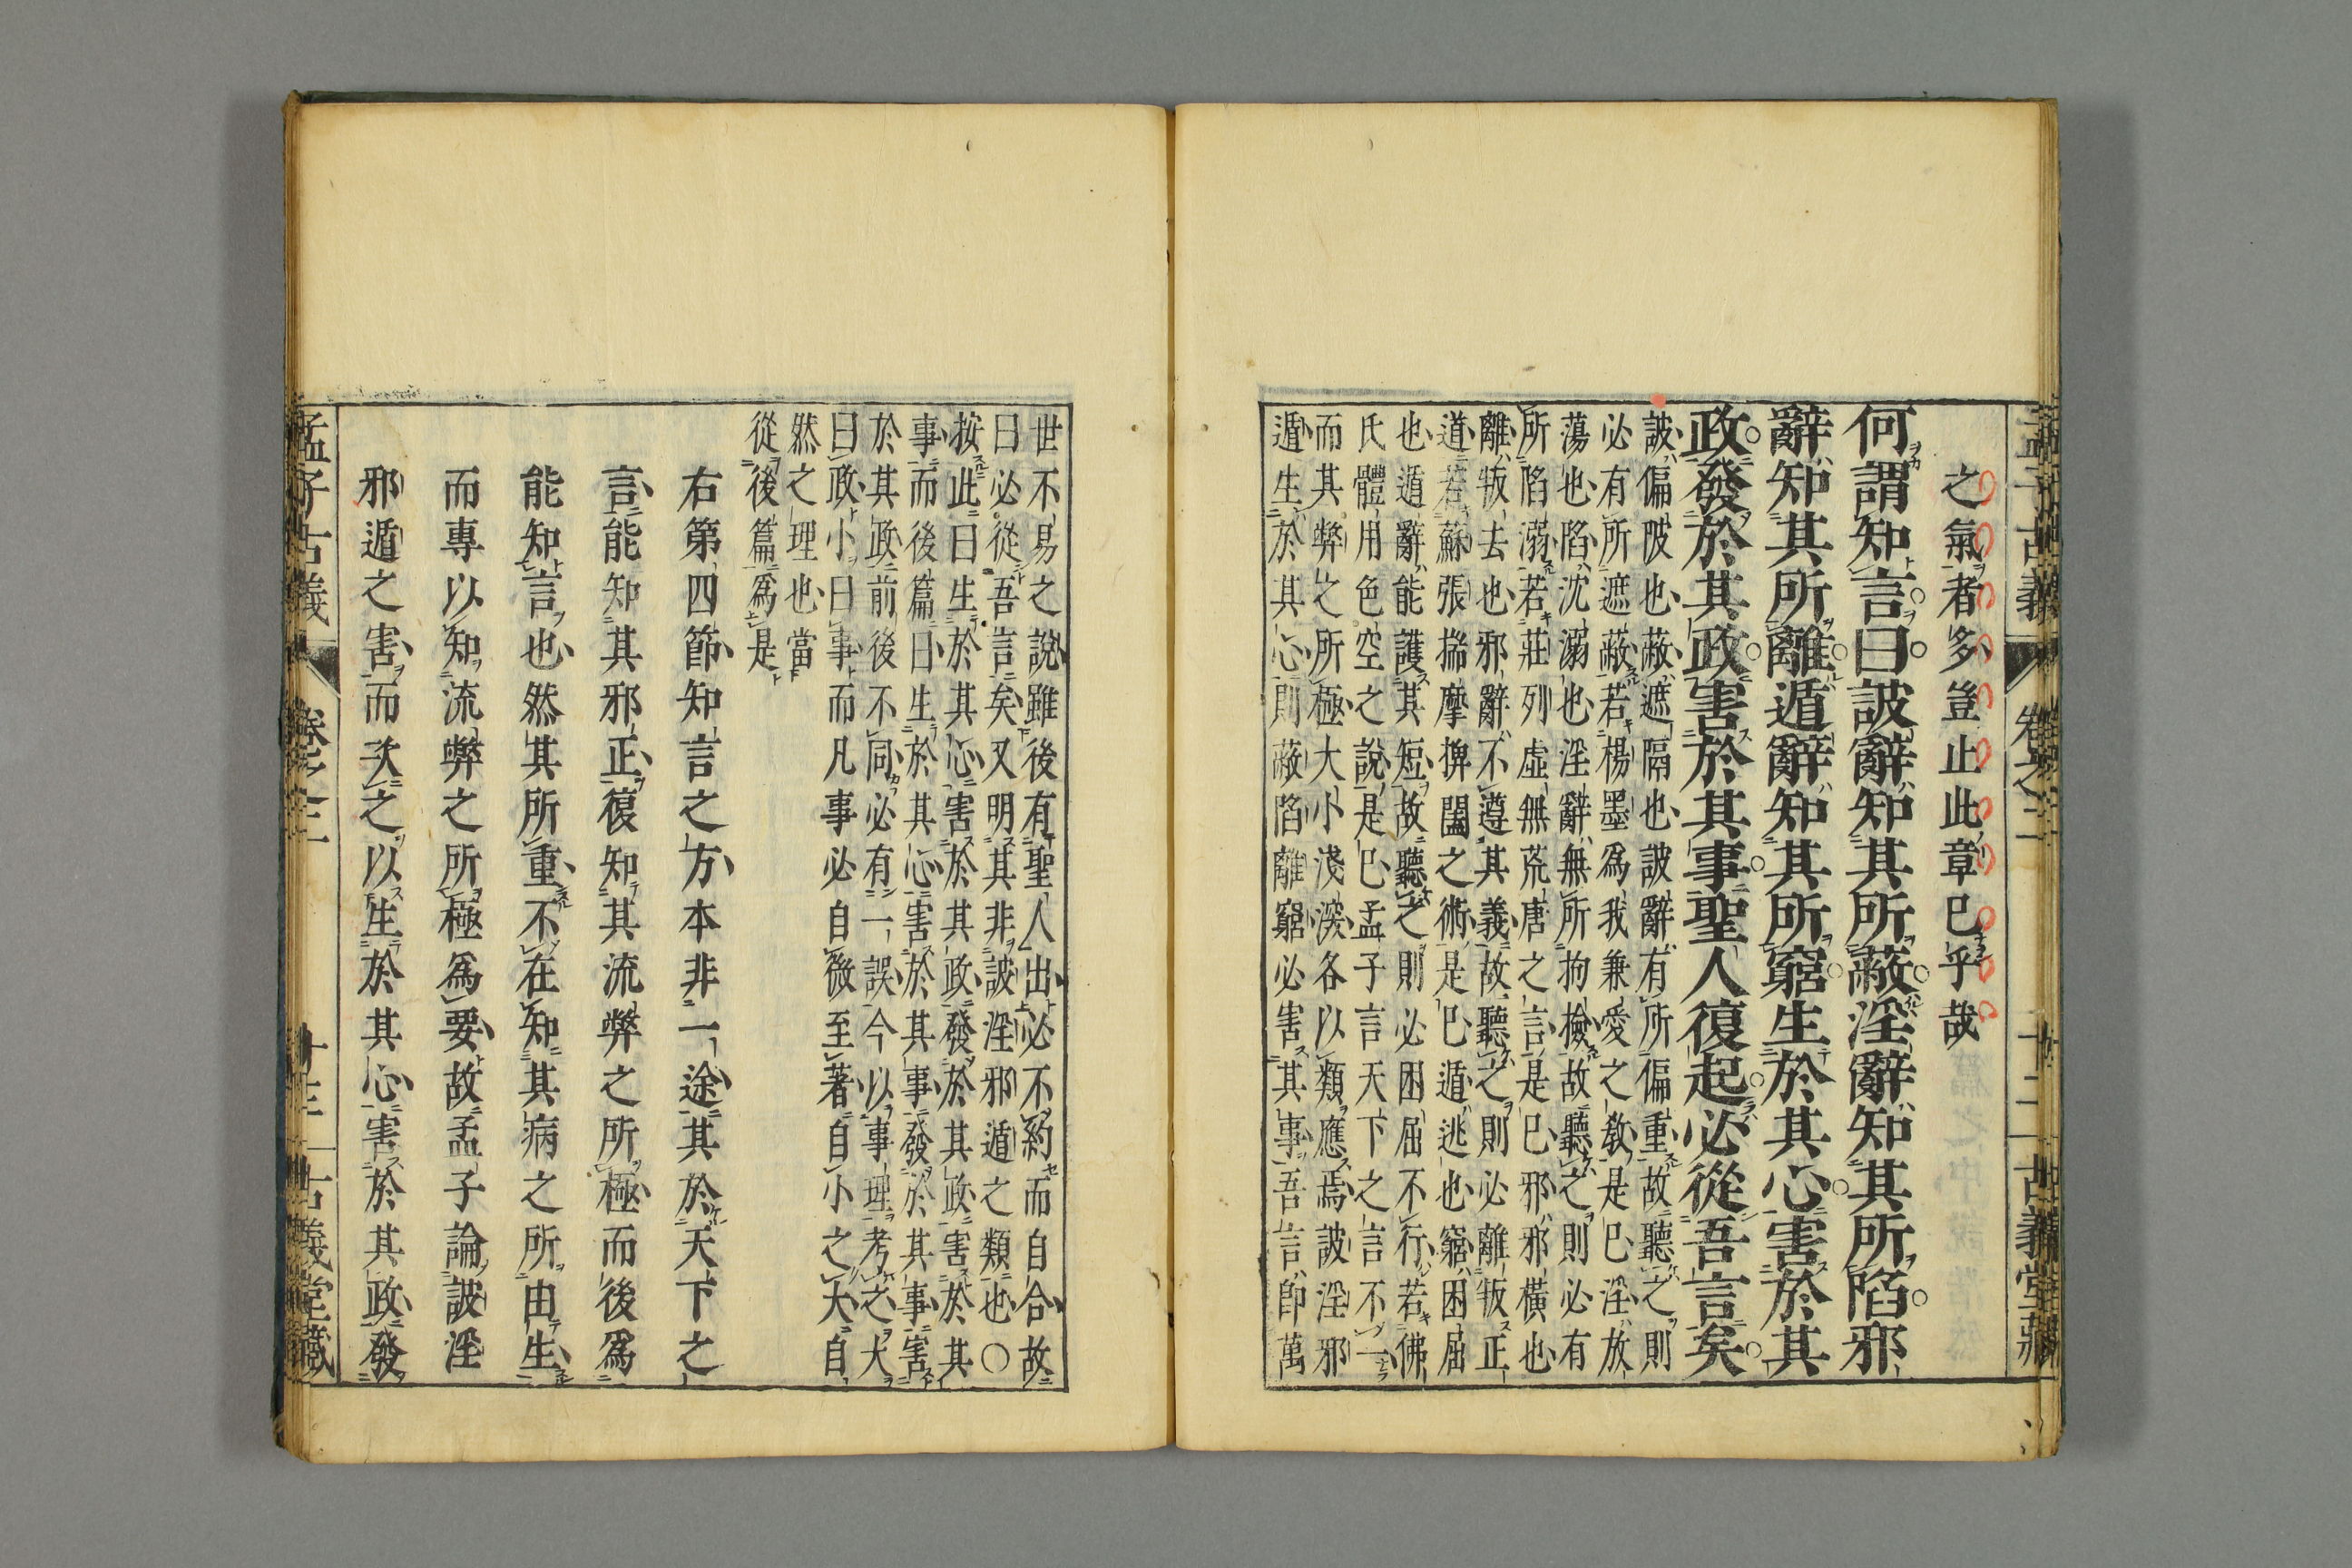 孟子古義
卷之二
十二
古義堂藏
之氣者多豈止此章已乎哉
何謂知言曰詖辭知其所蔽淫辭知其所陷邪
辭知其所離遁辭知其所窮生於其心害於其
政發於其政害於其事聖人復起必從吾言矣
詖偏陂也蔽遮隔也詖辭有所偏重故聽之則
必有所遮蔽若楊墨爲我兼愛之敎是已淫放
蕩也陷沈溺也淫辭無所拘檢故聽之則必有
所陷溺若莊列虛無荒唐之言是已邪邪橫也
離叛去也邪辭不遵其義故聽之則必離叛正
道若蘇張揣摩捭闔之術是已遁逃也窮困屈
也遁辭能護其短故聽之則必困屈不行若佛
氏體用色空之說是已孟子言天下之言不一
而其弊之所極大小淺深各以類應焉詖淫邪
遁生於其心則蔽陷離窮必害其事吾言卽萬
世不易之說雖後有聖人出必不約而自合故
曰必從吾言矣又明其非詖淫邪遁之類也〇
按此曰生於其心害於其政發於其政害於其
事而後篇曰生於其心害於其事發於其事害
於其政前後不同必有一誤今以事理考之大
曰政小曰事而凡事必自微至著自小之大自
然之理也當
從後篇爲是
右第四節知言之方本非一途其於天下之
言能知其邪正復知其流弊之所極而後爲
能知言也然其所重不在知其病之所由生
而專以知流弊之所極爲要故孟子論詖淫
邪遁之害而次之以生於其心害於其政發
孟子古義
卷之二
古義堂藏